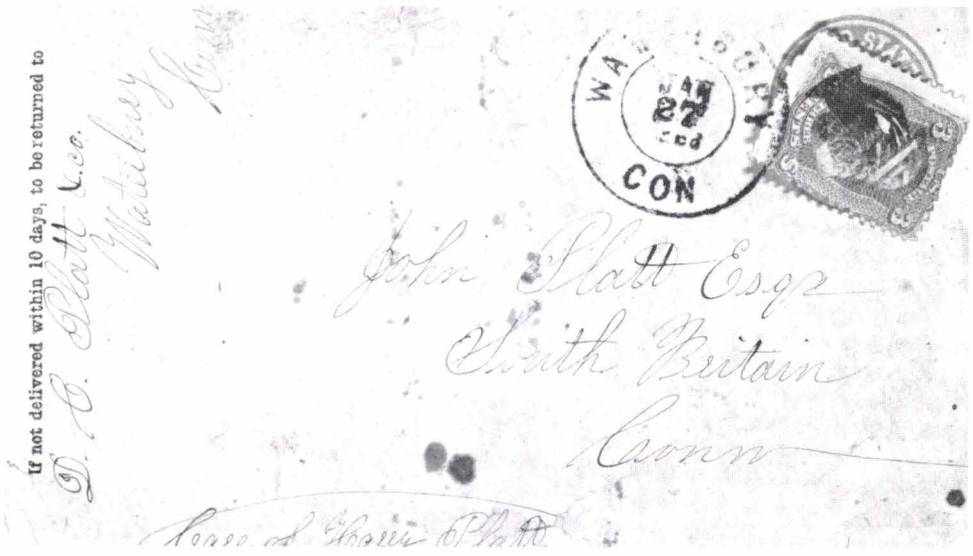 If not delivered within 10 days, to be returned to
D. C. Platt & co.
Waterbury
WATERBURY
JAN
27
CON
John Platt Esqr
South Britain
Conn
Care of Platt